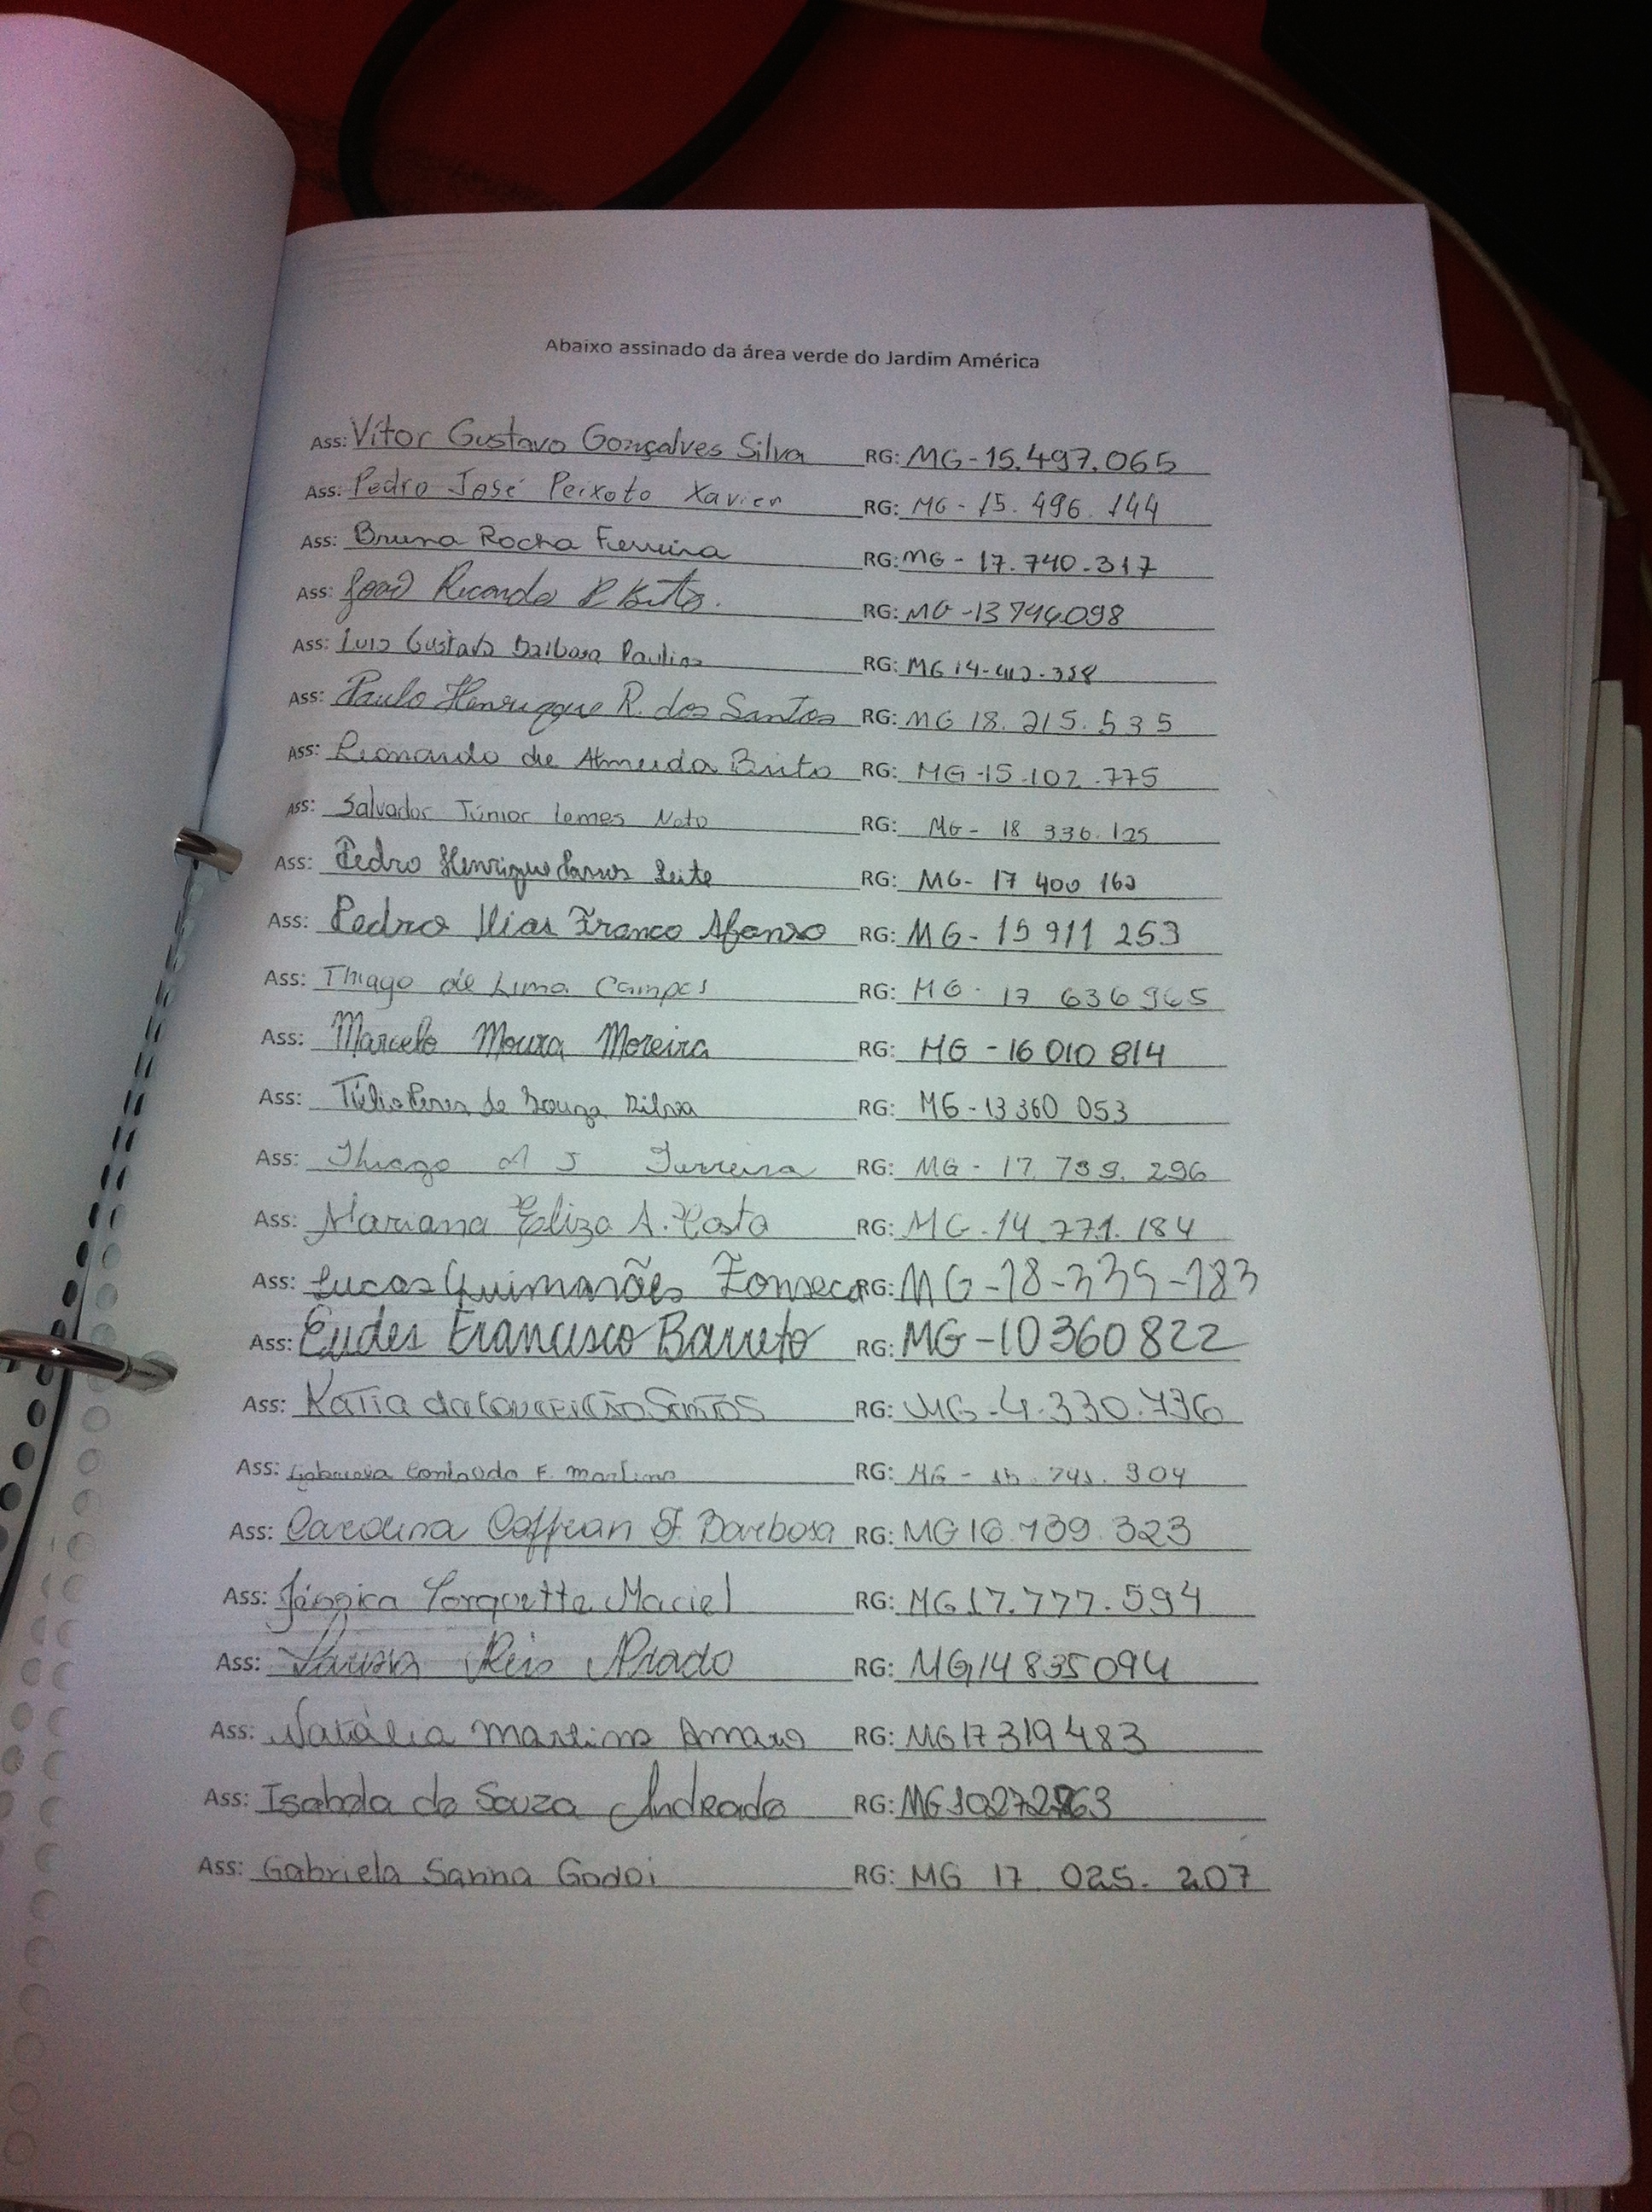 Abaixo assinado da área verde do Jardim América
Ass: Vitor Gustavo Gonçalves Silva RG: MG-15.497.065
Ass: Pedro José Peixoto Xavier RG: MG-15.496.144
Ass: Bruna Rocha Ferreira RG: MG-17.740.317
Ass: João Ricardo P. Brito. RG:
Ass: Luis Gustavo Barbosa Paulino RG:
Ass: Paulo Henrique R. dos Santos RG: MG 18.215.535
Ass: Leonardo de Almeida Brito RG: MG-15.102.775
Ass: Salvador Júnior Lemes Neto RG: MG-18 336.125
Ass: Pedro Henrique Leite RG: MG-17 400
Ass: Pedro Elias Franco Afonso RG: MG-15 911 253
Ass: Thiago de Lima Campos RG: MG-17 636 965
Ass: Marcelo Moura Moreira RG: MG-16 010 814
Ass: Túlio Peres de Souza Silva RG: MG-13 360 053
Ass: Thiago J Ferreira RG: MG-17.739.296
Ass: Mariana Eliza A. Costa RG: MG-14.771.184
Ass: Lucas Guimarães Fonseca RG: MG-18-335-183
Ass: Eudes Francisco Barreto RG: MG-10360822
Ass: Katia da Conceição Santos RG: MG-4.330.736
Ass: Gabriela F. Martins RG: MG-
Ass: Carolina Caffran F. Barbosa RG: MG 16.739.323
Ass: Jéssica Torquette Maciel RG: MG 17.777.594
Ass: Reis Prado RG: MG 14835094
Ass: Natália Martins Amaro RG: MG 17319483
Ass: Isabela de Souza Andrade RG:
Ass: Gabriela Sanna Godoi RG: MG 17.025.207